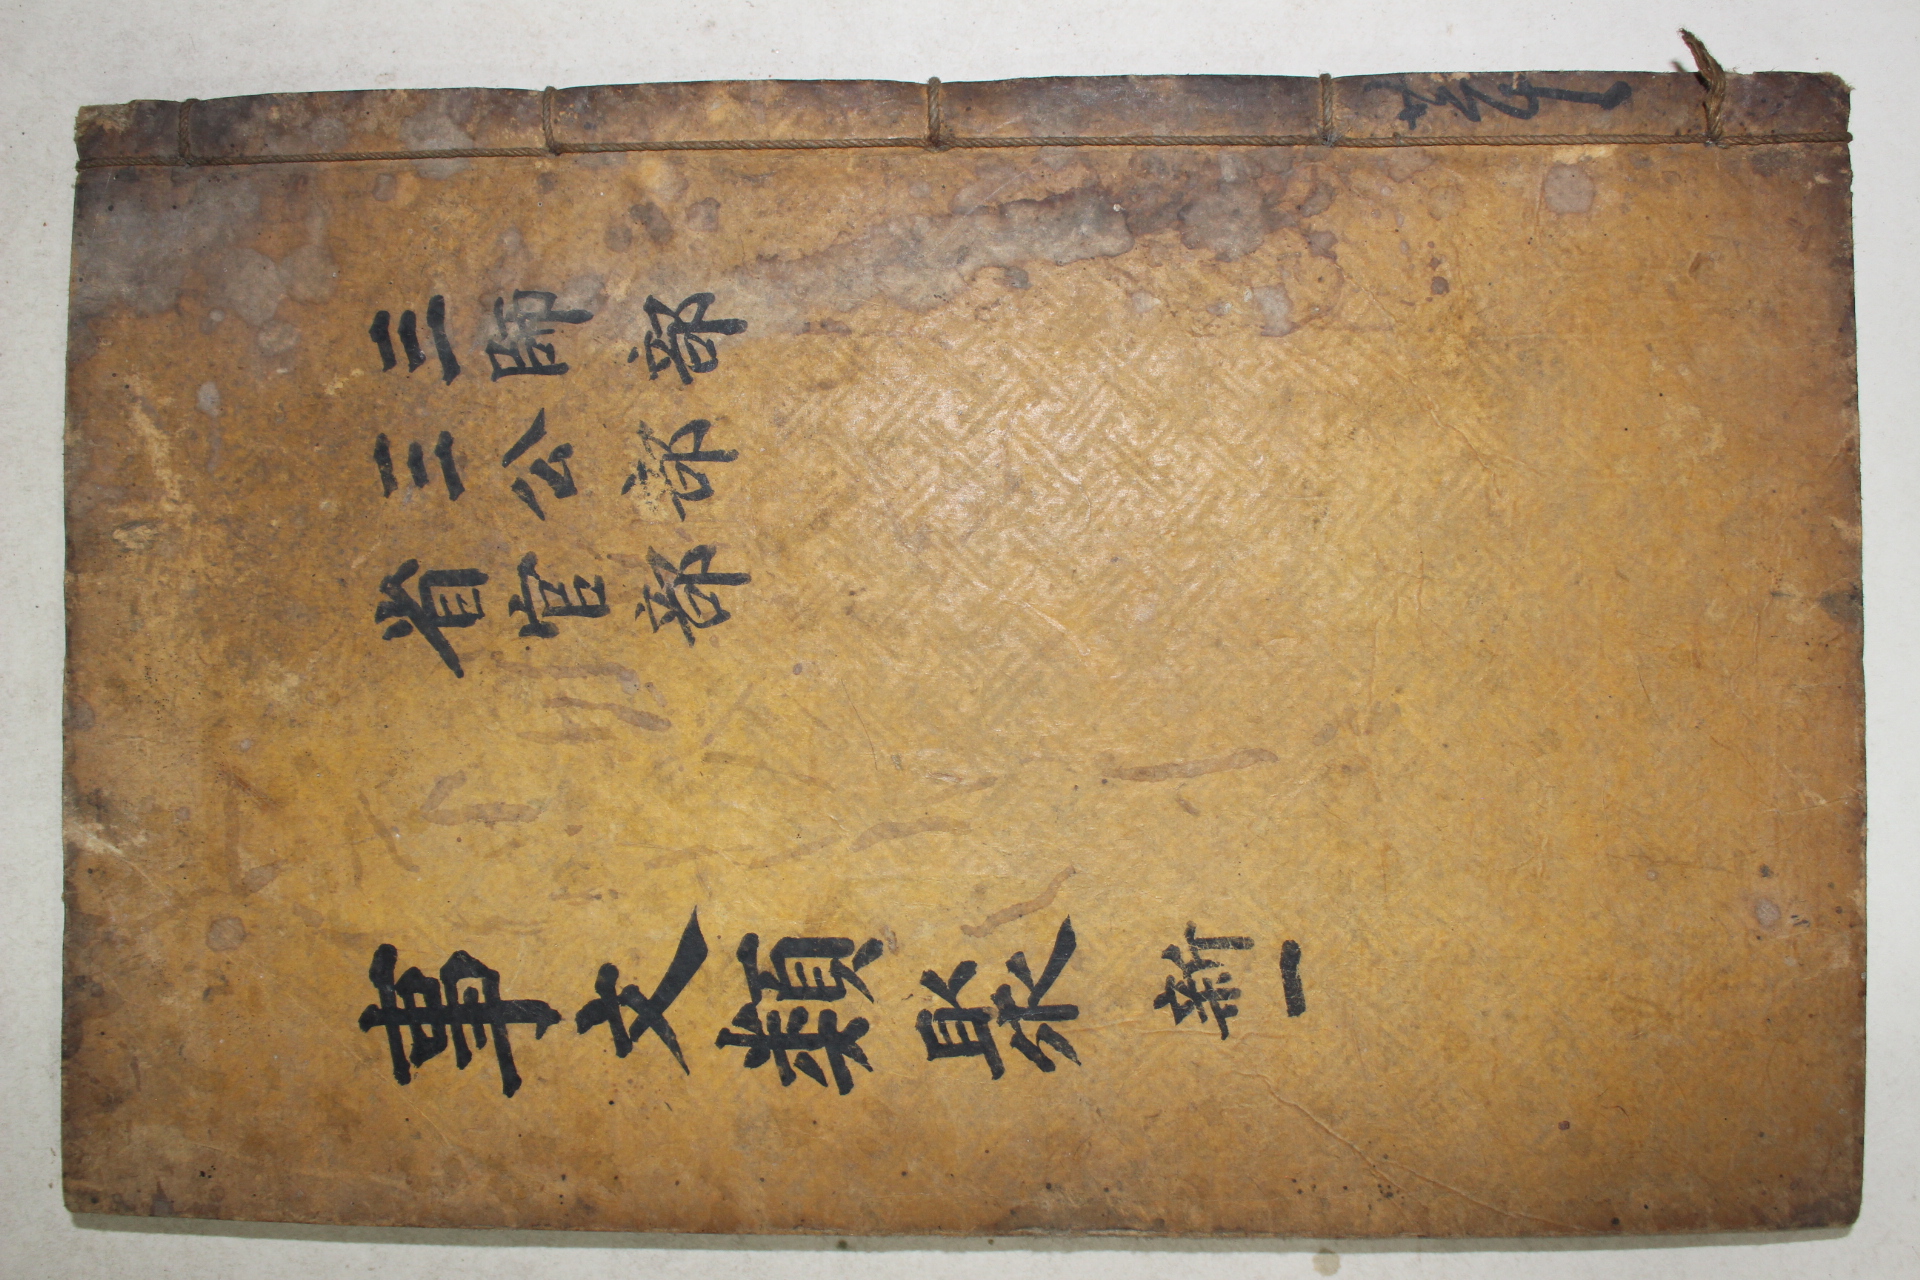 三師部
三公部
省官部
事文類聚 新一